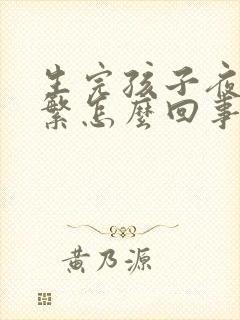 生完孩子夜
繁怎麼回事
黃乃源